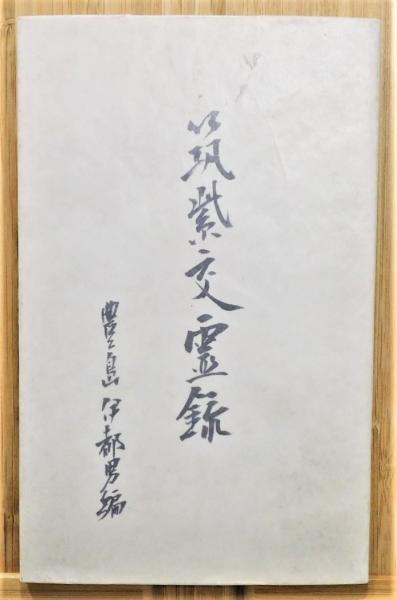 筑紫交霊録
豊島伊都男編